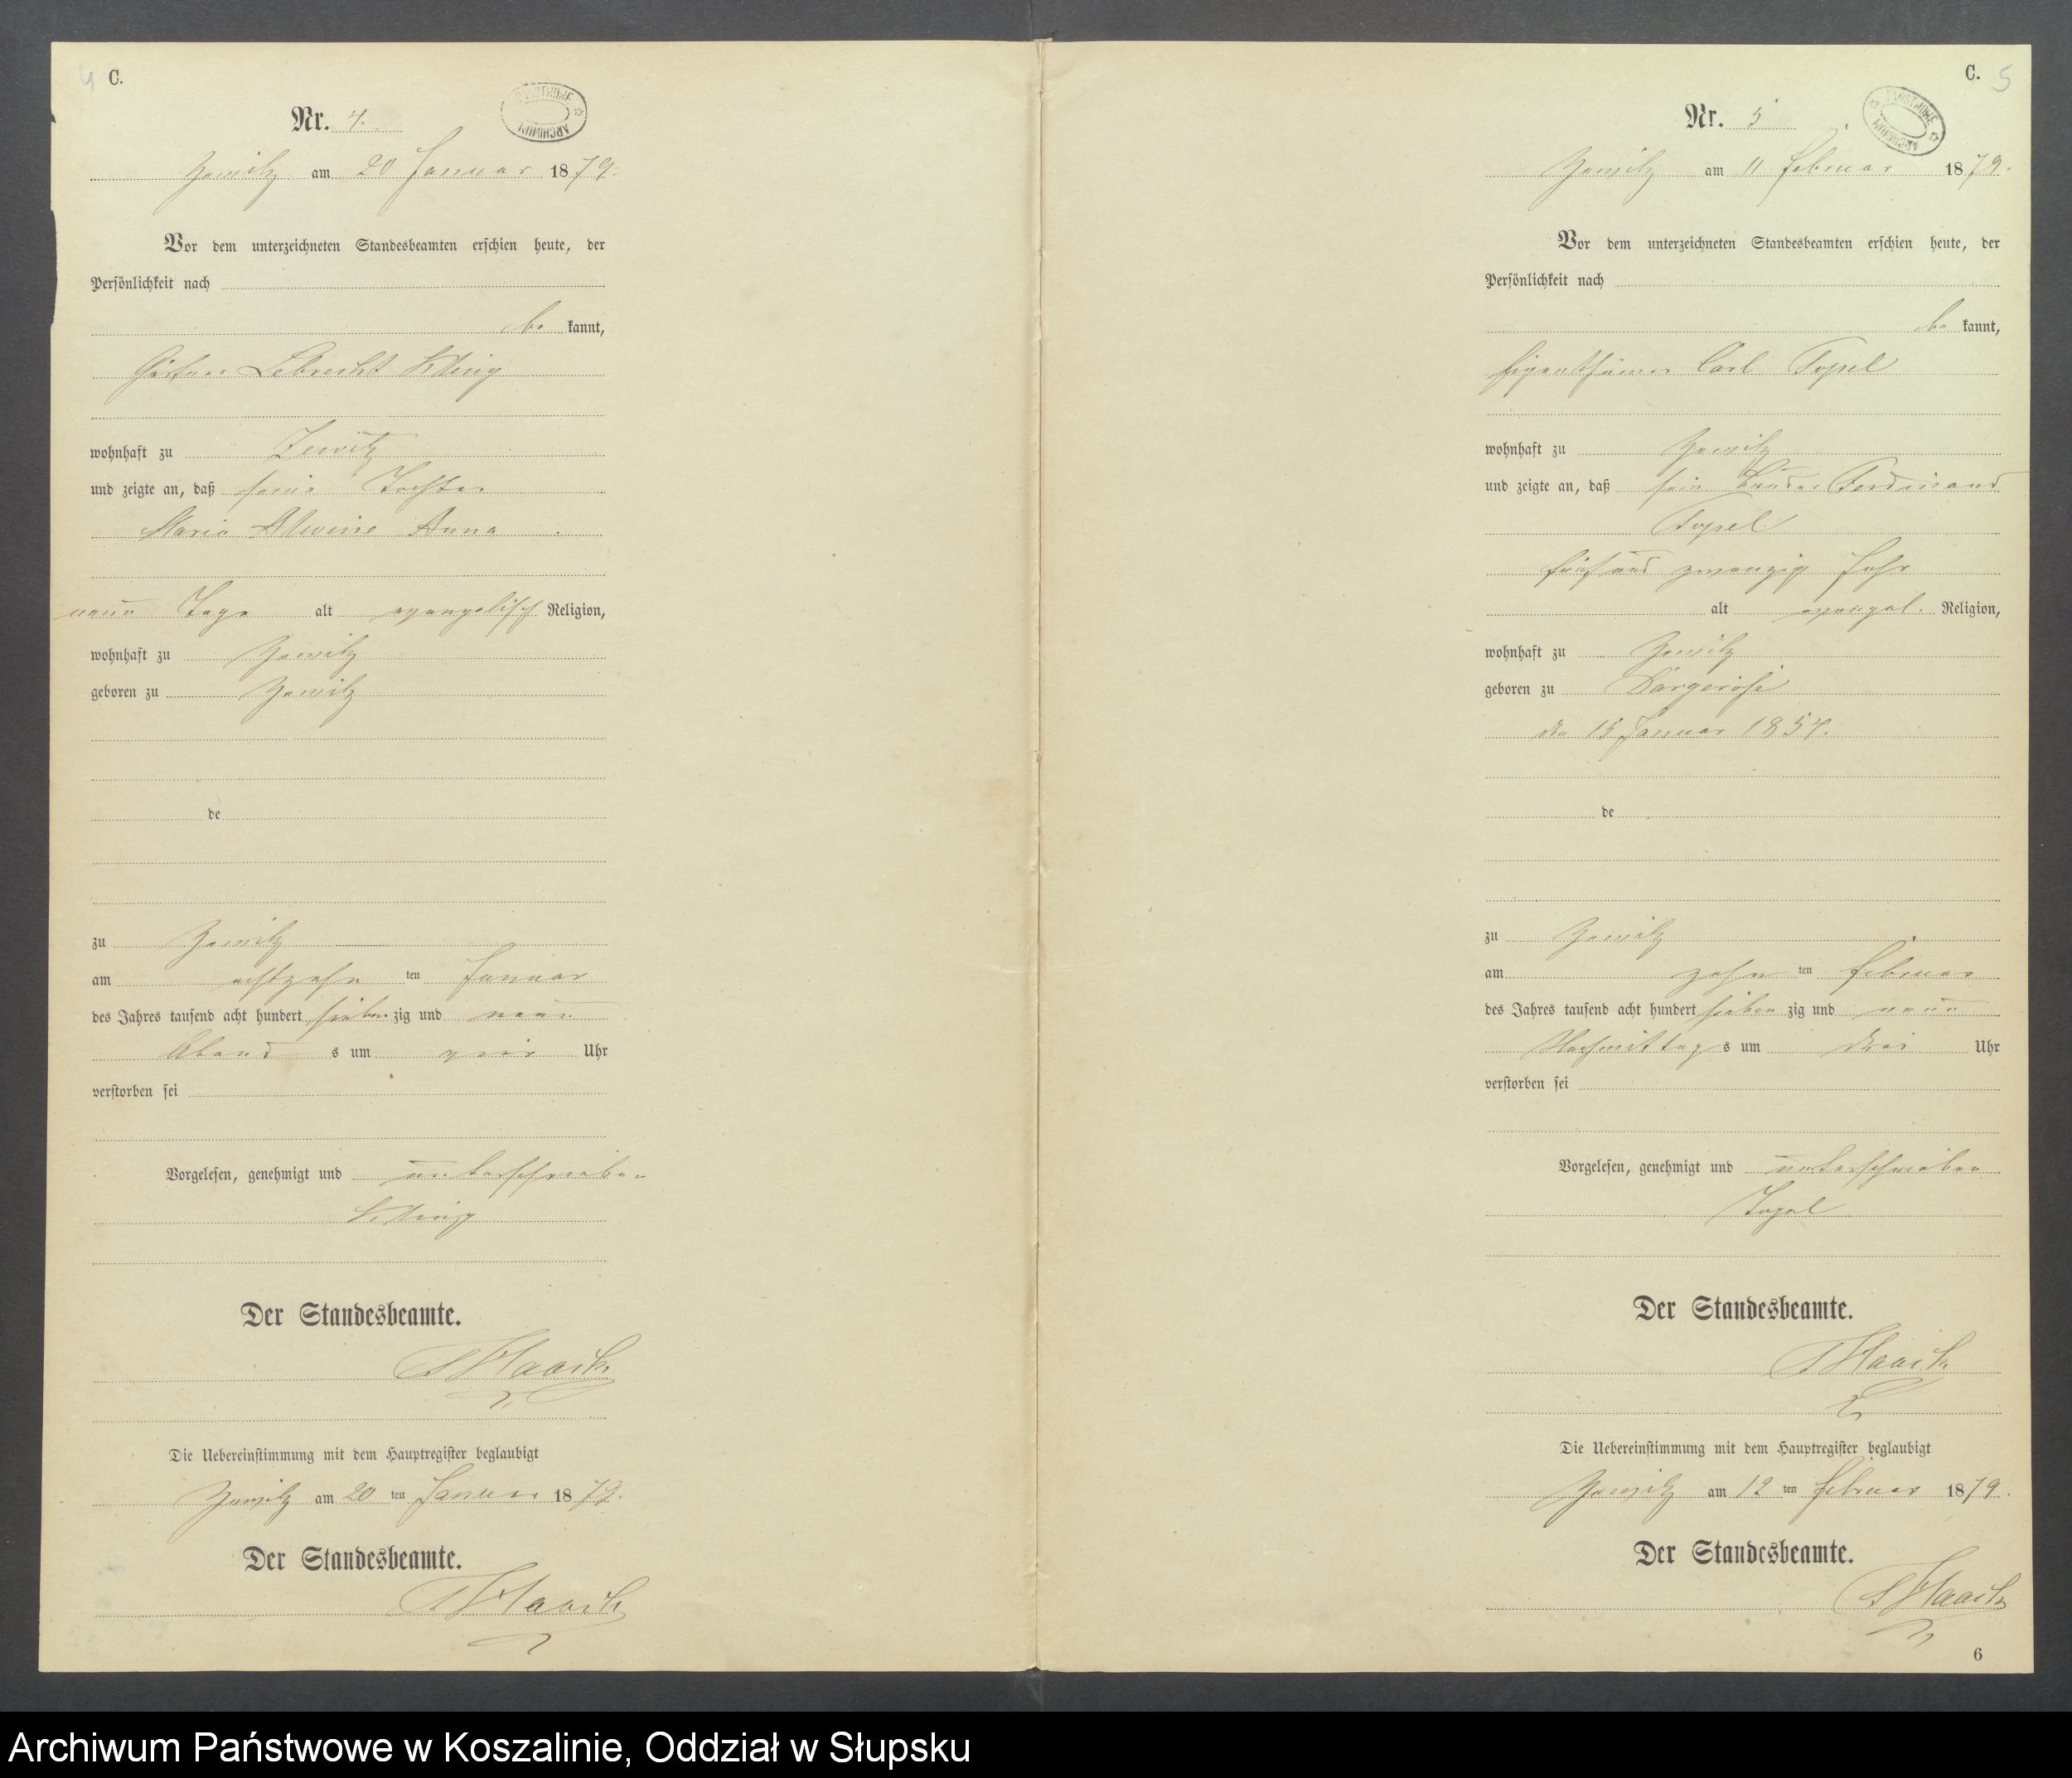 4 C.
Nr. 4.
PAŃSTWOWE ARCHIWUM
Zewitz am 20 Januar 1879.
Vor dem unterzeichneten Standesbeamten erschien heute, der
Persönlichkeit nach
be kannt,
Gärtner Lebrecht
wohnhaft zu Zewitz
und zeigte an, daß seine Tochter
Marie Alwine Anna
neun Tage alt evangelisch Religion,
wohnhaft zu Zewitz
geboren zu Zewitz
de
zu Zewitz
am achtzehn ten Januar
des Jahres tausend acht hundert sieben zig und neun
Abend s um Uhr
verstorben sei
Vorgelesen, genehmigt und unterschrieben
Der Standesbeamte.
Die Uebereinstimmung mit dem Hauptregister beglaubigt
Zewitz am 20 ten Januar 1879.
Der Standesbeamte.
C. 5
Nr. 5
PAŃSTWOWE ARCHIWUM
Zewitz am 11 Februar 1879.
Vor dem unterzeichneten Standesbeamten erschien heute, der
Persönlichkeit nach
be kannt,
Eigenthümer Carl Topel
wohnhaft zu Zewitz
und zeigte an, daß sein Bruder Ferdinand
Topel
fünf und zwanzig Jahr
alt evangel. Religion,
wohnhaft zu Zewitz
geboren zu Dargeröse
den 15 Januar 1854.
de
zu Zewitz
am zehn ten Februar
des Jahres tausend acht hundert sieben zig und neun
Nachmittag s um drei Uhr
verstorben sei
Vorgelesen, genehmigt und unterschrieben
Topel
Der Standesbeamte.
Die Uebereinstimmung mit dem Hauptregister beglaubigt
Zewitz am 12 ten Februar 1879.
Der Standesbeamte.
6
Archiwum Państwowe w Koszalinie, Oddział w Słupsku